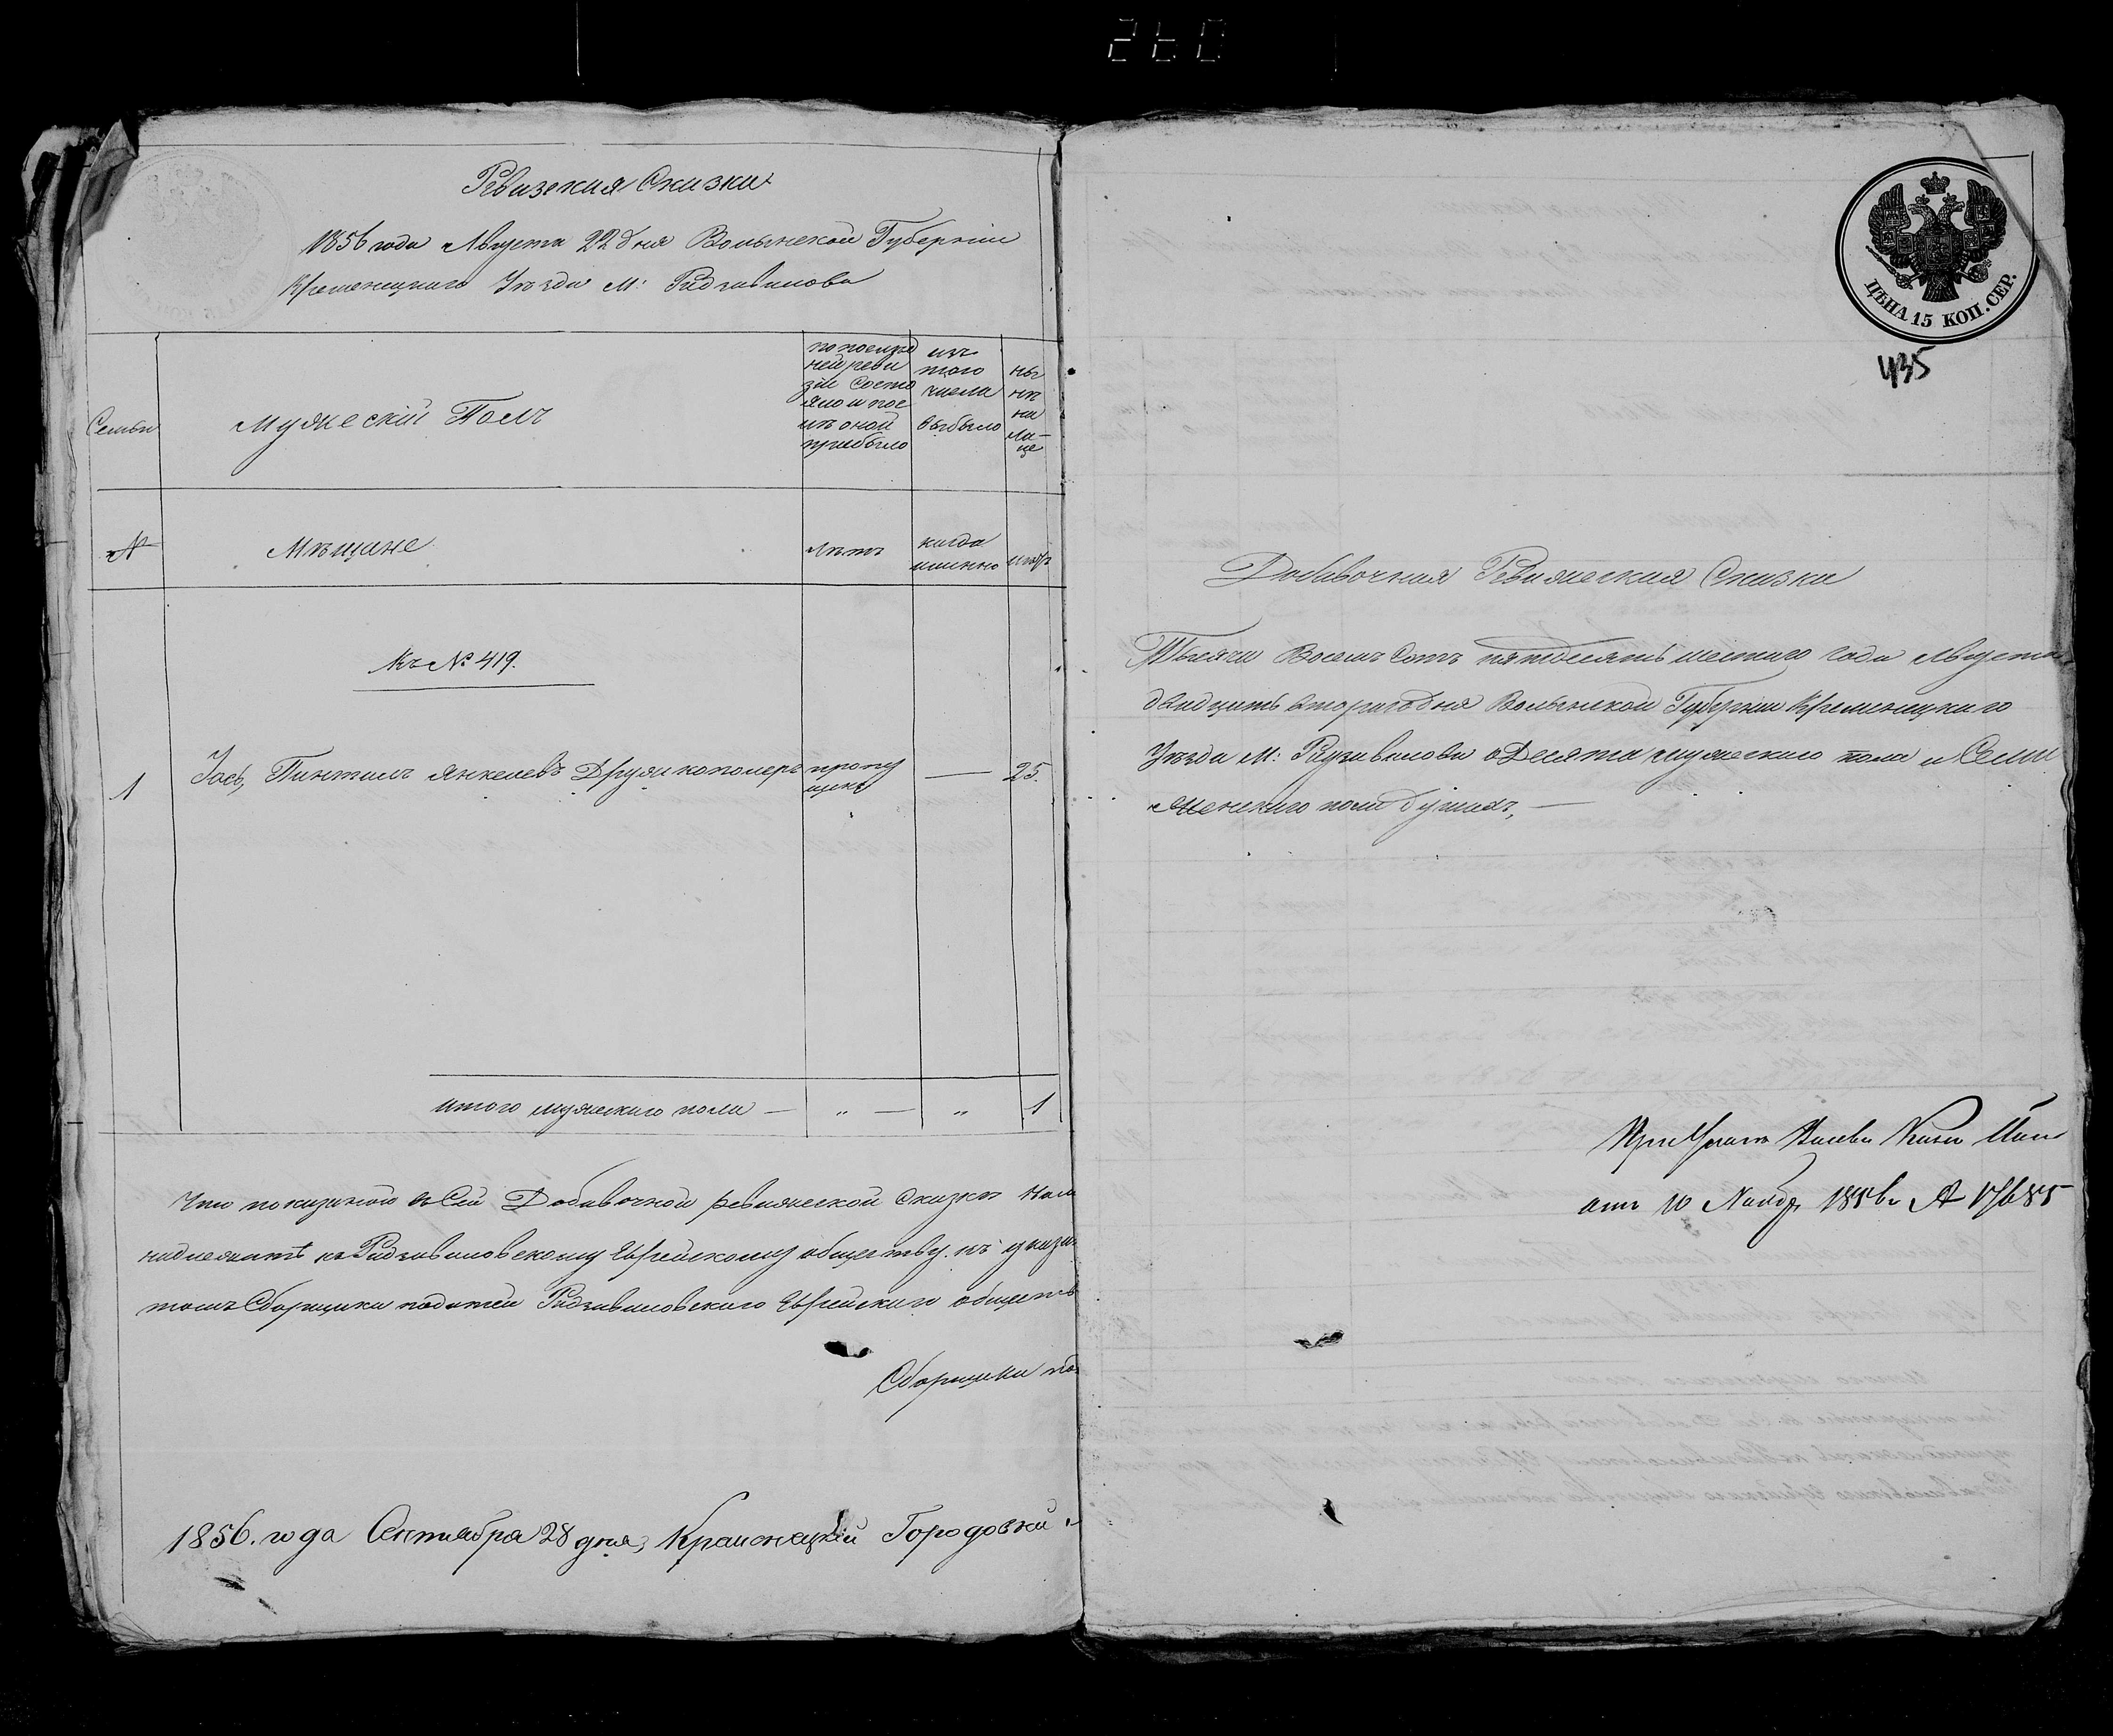 260
Ревизския Сказки
1856 года Августа 22 дня Волынской Губерніи
Кременецкаго Уезда М: Радзивилова
Семьи
Мужескій Полъ
по послед
ней реви
зіи состо
яло и пос
лѣ оной
прибыло
изъ
того
числа
выбыло
ны
нѣ
на
ли-
це
№
Мѣщане
Лѣта
когда
именно
лѣтъ
Къ № 419.
1
Іось, Пинтилъ Янкелевъ
пропу
щенъ
—
25.
итого мужескаго пола — „ — „ 1
Что показаной въ Сей Добавочной ревижской Сказкѣ
надлежитъ къ Радзивиловскому Еврейскому обществу
Сборщики податей Радзивиловского Еврейскаго обществ
Сборщики по
1856. года Сентября 28 дня, Кременецкій Городовой
ЦѢНА 15 КОП. СЕР.
435
Добавочная Ревижския Сказки
Тысяча Восемь Сотъ пятдесять шестаго года Августа
двадцать втораго дня Волынской Губерніи Кременецкаго
Уѣзда М: Радзивилова о Десяти мужескаго пола и Семи
женскаго пола душахъ, —
При Указѣ Казен Пал
отъ 10 Нояб. 1856 г № 17685